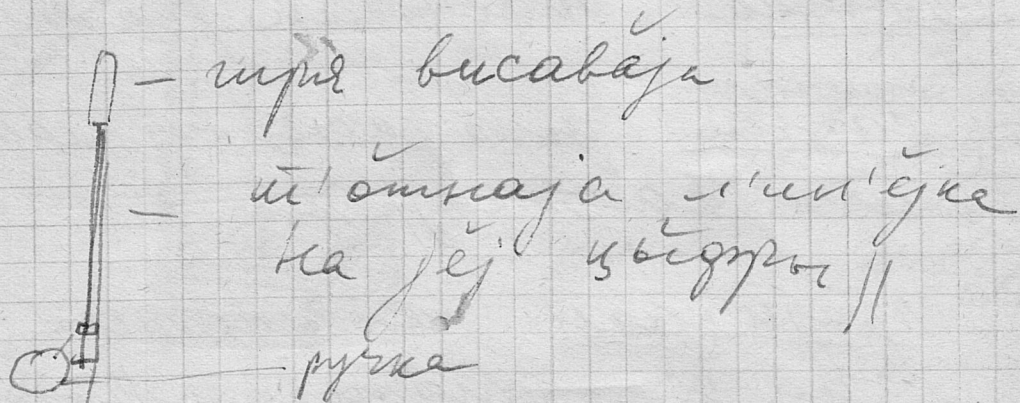 – гиря висава́jа
– ш̄'о́тнаjа л'ин'е́jка
на jе́j цы́фры ||
ручка